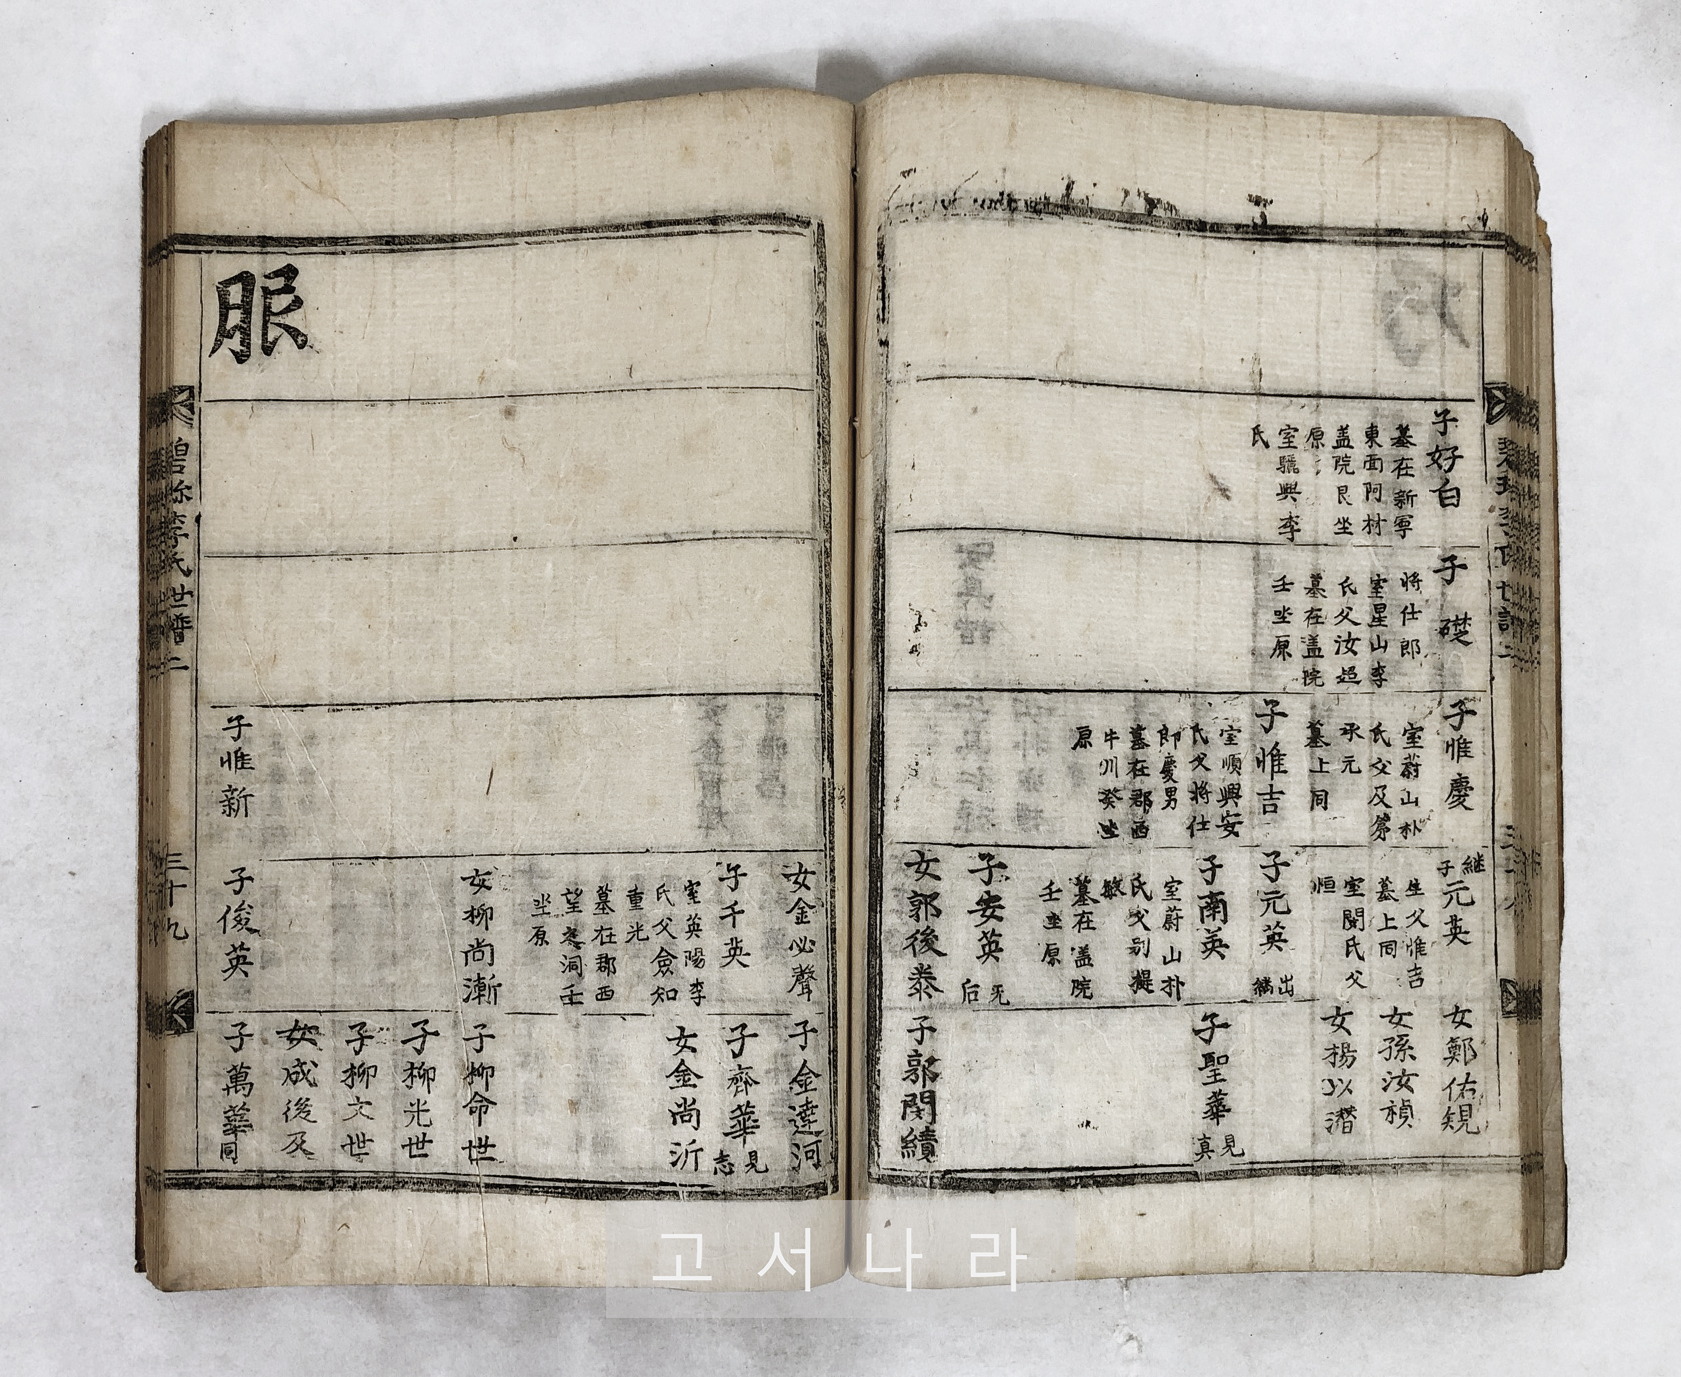 子好白
墓在新寧
東面阿材
盖院艮坐
原
室驪興李
氏
子礎
將仕郎
室星山李
氏父汝超
墓在盖院
壬坐原
子惟慶
室蔚山朴
氏父及第
承元
墓上同
子惟吉
室順興安
氏父將仕
郎慶男
墓在郡西
牛川癸坐
原
継子元英
生父惟吉
墓上同
室閔氏父
恒
子元英
出
繼
子南英
室蔚山朴
氏父别提
敏
墓在盖院
壬坐原
子安英
无
后
女郭後泰
女鄭佑
女孫汝禎
女楊以潛
子聖華
見
真
子郭閔績
女金必聲
子千英
室英陽李
氏父僉知
重光
墓在郡西
望洞壬
坐原
女柳尚漸
子惟新
子俊英
子金達河
子齊華
見
志
女金尚沂
子柳命世
子柳光世
子柳文世
女成後及
子萬華
同
服
碧珍李氏世譜二
三十九
고서나라